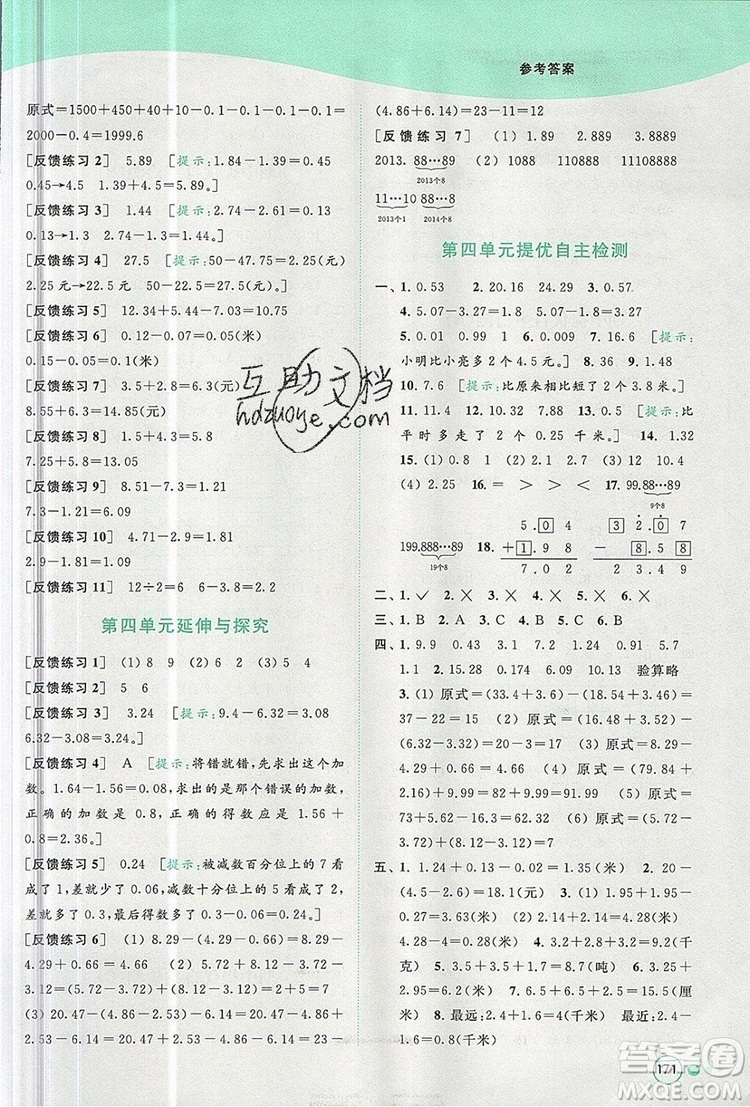 参考答案
原式＝1500＋450＋40＋10－0.1－0.1－0.1－0.1＝
2000－0.4＝1999.6
[反馈练习 2]　5.89　[提示:1.84－1.39＝0.45
0.45→4.5　1.39＋4.5＝5.89。]
[反馈练习 3]　1.44　[提示:2.74－2.61＝0.13
0.13→1.3　2.74－1.3＝1.44。]
[反馈练习 4]　27.5　[提示:50－47.75＝2.25(元)
2.25 元→22.5 元　50－22.5＝27.5(元)。]
[反馈练习 5]　12.34＋5.44－7.03＝10.75
[反馈练习 6]　0.12－0.07＝0.05(米)
0.15－0.05＝0.1(米)
[反馈练习 7]　3.5＋2.8＝6.3(元)
8.55＋6.3＝14.85(元)
[反馈练习 8]　1.5＋4.3＝5.8
7.25＋5.8＝13.05
[反馈练习 9]　8.51－7.3＝1.21
7.3－1.21＝6.09
[反馈练习 10]　4.71－2.9＝1.81
2.9－1.81＝1.09
[反馈练习 11]　12÷2＝6　6－3.8＝2.2
第四单元延伸与探究
[反馈练习 1]　(1) 8　9　(2) 3　0　(3) 5　4
[反馈练习 2]　5　6
[反馈练习 3]　3.24　[提示:9.4－6.32＝3.08
6.32－3.08＝3.24。]
[反馈练习 4]　A　[提示:将错就错,先求出这个加
数。1.64－1.56＝0.08,求出的是那个错误的加数,
正确的加数是 0.8,正确的得数应是 1.56＋
0.8＝2.36。]
[反馈练习 5]　0.24　[提示:被减数百分位上的 7 看
成了 1,差就少了 0.06,减数十分位上的 5 看成了 2,
差就多了 0.3,0.3－0.06＝0.24。]
[反馈练习 6]　(1) 8.29－(4.29－0.66)＝8.29－
4.29＋0.66＝4.66　(2) 5.72＋8.12－4.72＋0.88＝
(5.72－4.72)＋(8.12＋0.88)＝1＋9＝10
(3) 20.47－(6.86－2.53)－4.86－6.14＝20.47＋
2.53－6.86－4.86－6.14＝(20.47＋2.53)－6.86－
(4.86＋6.14)＝23－11＝12
[反馈练习 7]　(1) 1.89　2.889　3.8889
2013.88⋯89　(2) 1088　108888　11108888
2013个8
11⋯10 88⋯89
2013个1　2014个8
第四单元提优自主检测
一、1. 0.53　2. 20.16　24.29　3. 0.57
4. 5.07＋1.8＝6.87　5.07－1.8＝3.27
5. 0.01　0.99　6. 0.009　7. 16.4　[提示:
小明比小亮多 2 个 4.5 元。]　8. 36　9. 1.48
10. 7.6　[提示:比原来相比短了 2 个 3.8 米。]
11. 11.4　12. 10.32　7.88　13. 0.5　[提示:比
平时多走了 2 个 0.25 千米。]　14. 1.32
15. (1) 0.8　0.6　(2) 1　2　(3) 12　10.4
(4) 2.25　16. ＝　＞　＞　＜　17. 99.88⋯89
9个8
199.888⋯89
19个8
18.　5.04　32.07
＋1.98　－28.58
7.02　3.49
二、1. ✓　2. ×　3. ×　4. ×　5. ×
三、1. B　2. A　3. C　4. C　5. B
四、1. 9.9　0.43　3.8　3.1　7.19　0.6　0.97
1.1　2. 4.08　24.55　10.03　验算略
3. (1) 原式＝(38.4－1.4)－(18.54＋3.46)＝
37－22＝15　(2) 原式＝(16.48＋3.52)－
(4.2＋1.8)＝20－6＝14　(3) 原式＝(79.84＋
2.16)＋9.99＝82＋9.99＝91.99　(4) 原式＝
73＋5.62－3.62＝75　(5) 原式＝(5.72－
3.72)＋(8.12－3.12)＝2＋5＝7
五、1. 1.24＋0.13－0.02＝1.35(米)　2. 20－
(4.85－3)＝18.15(元)　3. (1) 1.95＋1.95－
0.23＝3.67(米)　(2) 2.14＋2.14＝4.28(米)
4.28－4＝0.28(米)　4. 3.6＋3.6＋2＝9.2(千
克)　5. 4.15＋4.15＋0.4＝8.7(吨)　6. 3.25＋
2.95＝6.2(米)　7. 6.5＋6.5＋2.65＝15.65(厘
米)　8. 最远:2.4＋1.6＝4(米)　最近:2.4－
1.6＝0.8(米)
互助文档
hdzuoye.com
答案圈
MXQE.COM
171